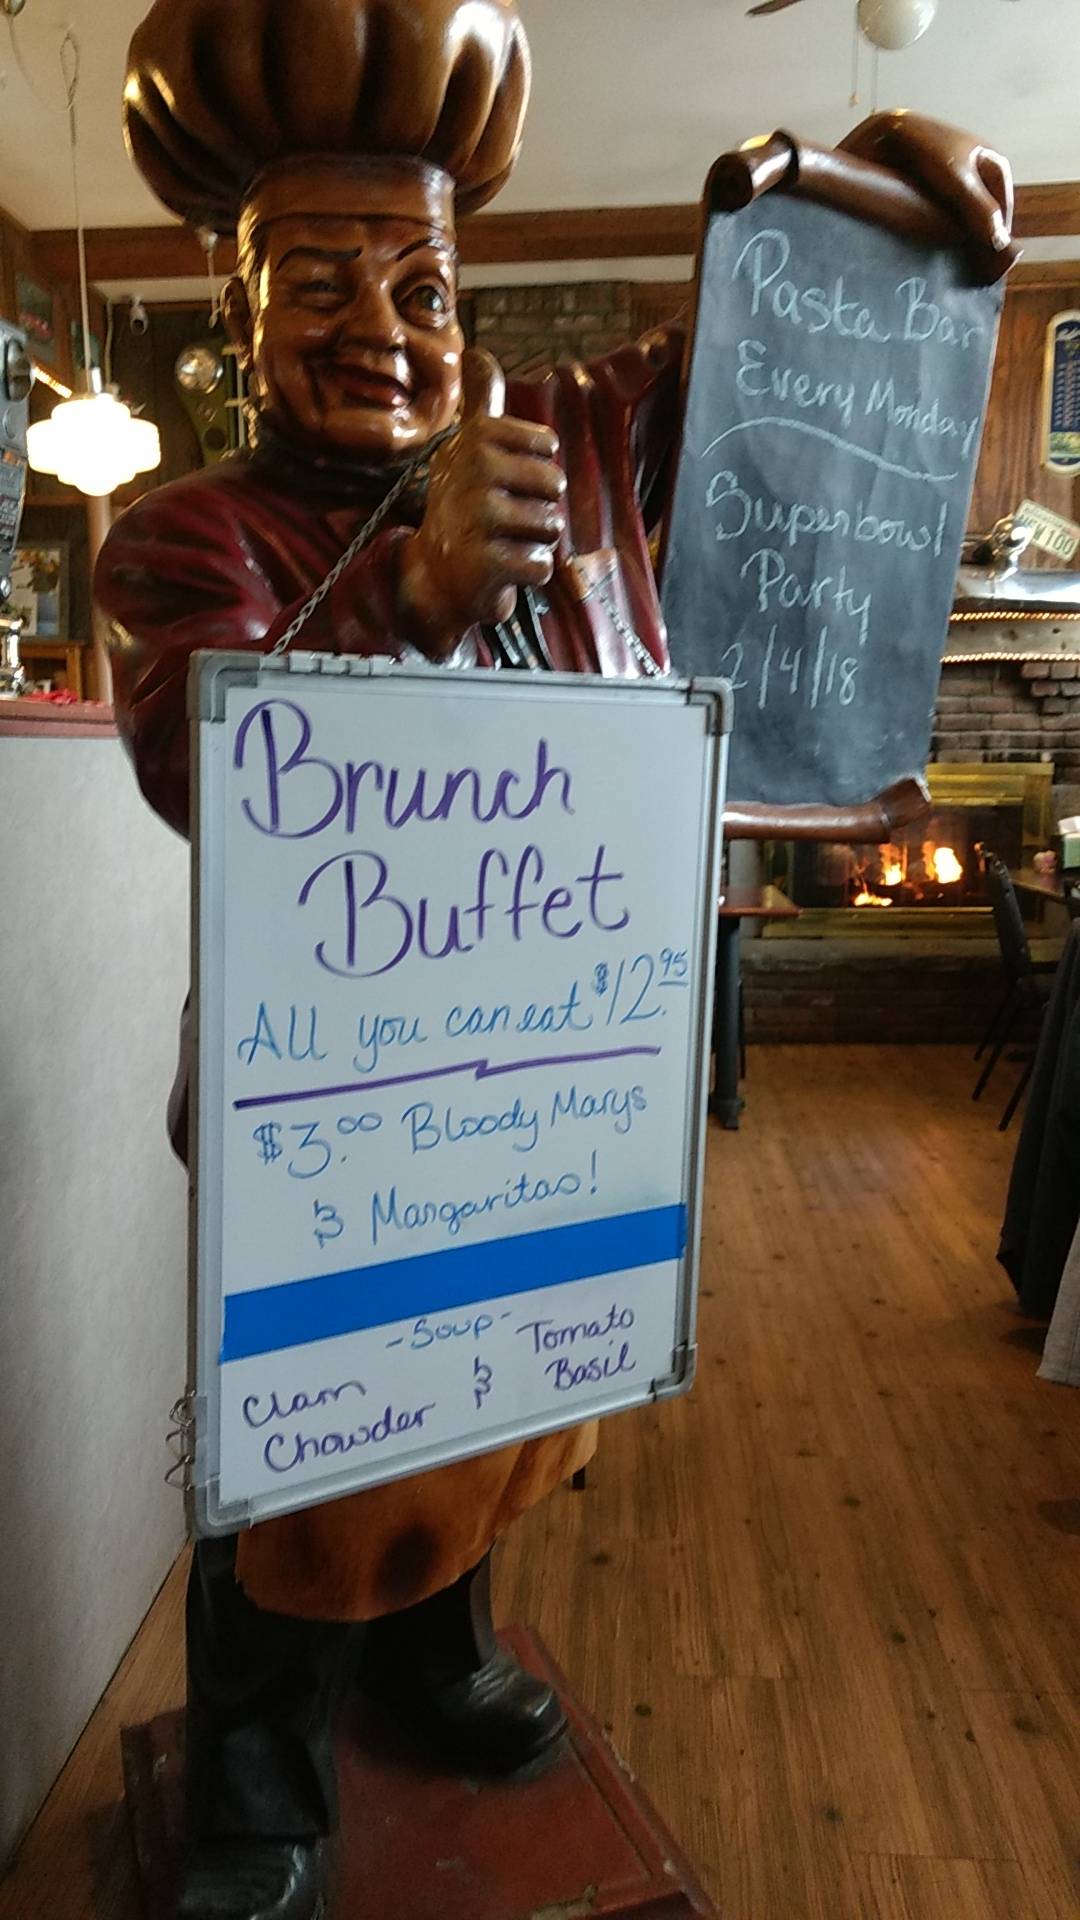 Pasta Bar
Every Monday
Superbowl
Party
2/4/18
Brunch
Buffet
All you can eat $12.95
$3.00 Bloody Marys
& Margaritas!
-Soup-
Clam
Chowder
&
Tomato
Basil
100